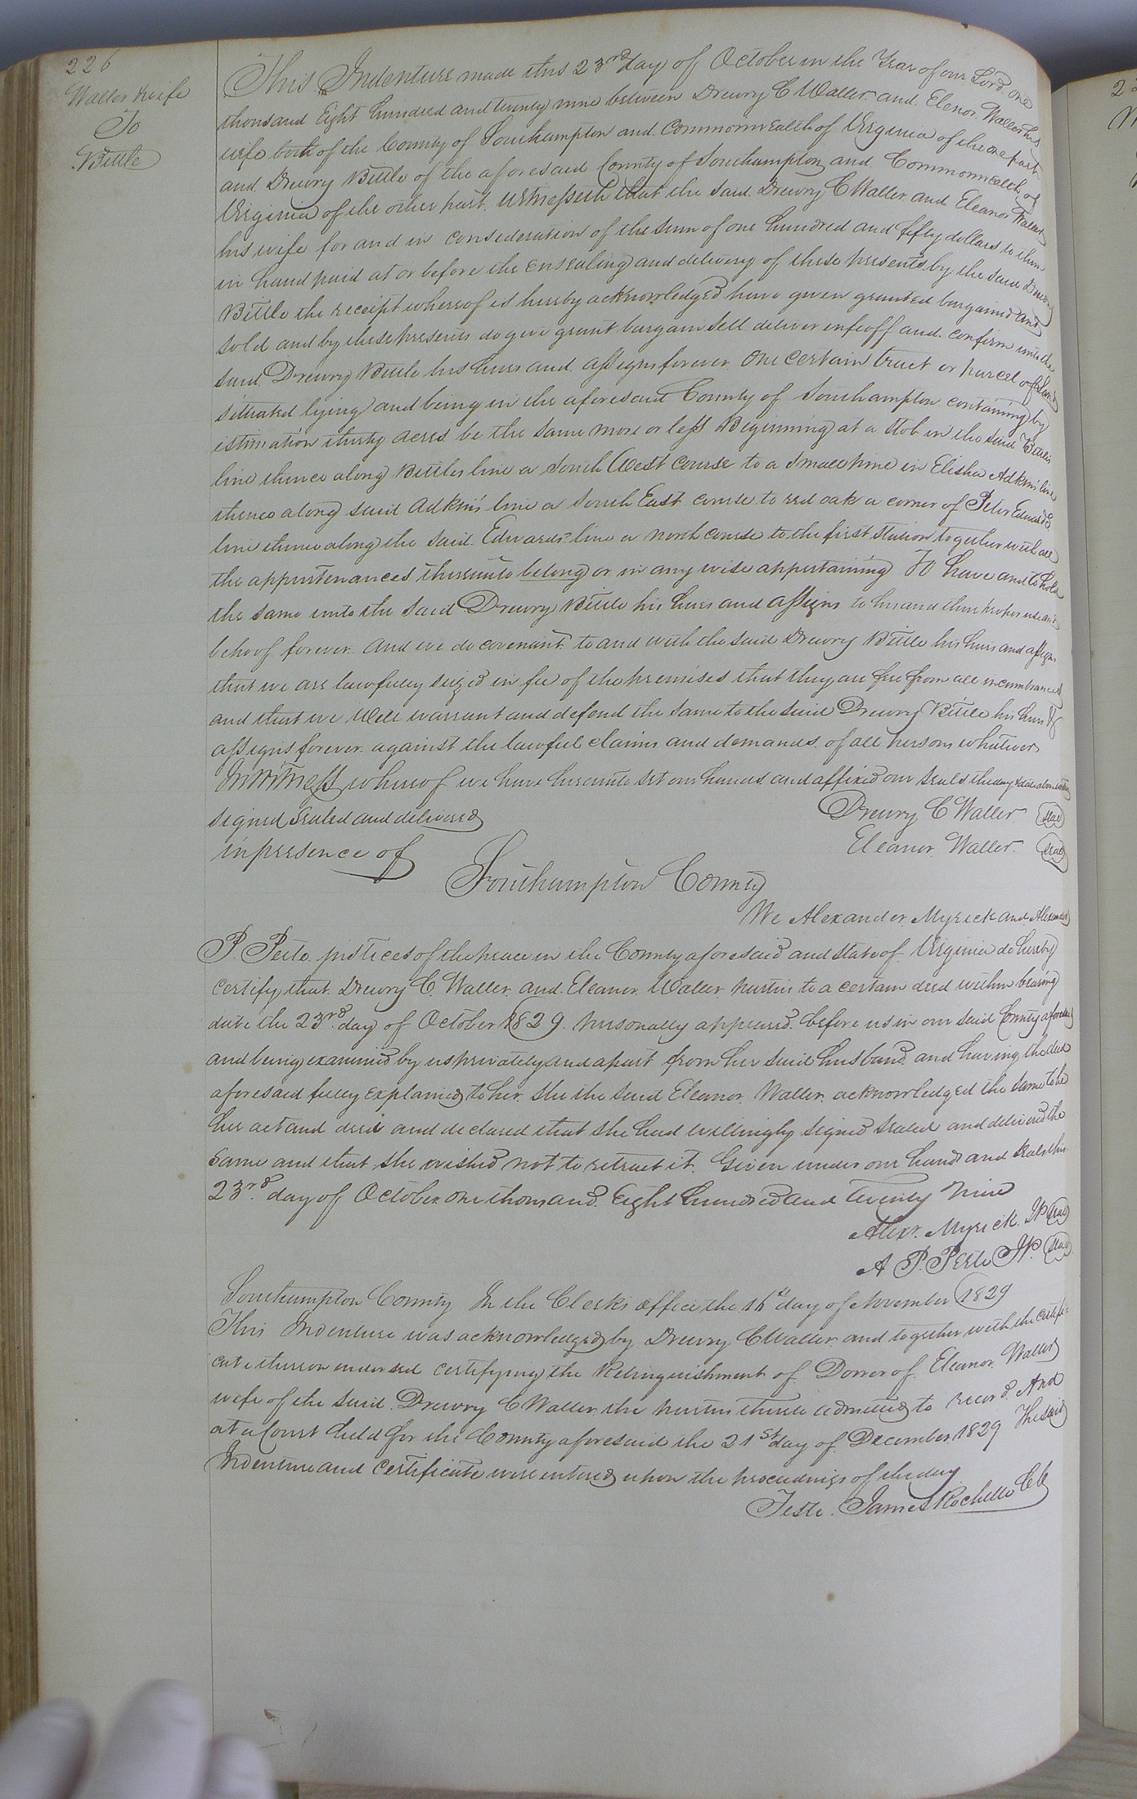 226
Waller & wife
To
Bittle
This Indenture made this 23rd day of October in the Year of our Lord one
thousand Eight hundred and twenty nine between Drewry C Waller and Elenor Waller his
wife both of the County of Southampton and Commonwealth of Virginia of the one part
and Drewry Bittle of the aforesaid County of Southampton and Commonwealth of
Virginia of the other part. Witnesseth that the said Drewry C Waller and Eleanor Waller
his wife for and in consideration of the sum of one hundred and fifty dollars to them
in hand paid at or before the ensealing and delivery of these presents by the said Drewry
Bittle the receipt whereof is hereby acknowledged have given granted bargained and
sold and by these presents do give grant bargain sell deliver infeoff and confirm unto the
said Drewry Bittle his heirs and assigns forever One certain tract or parcel of land
situated lying and being in the aforesaid County of Southampton containing by
estimation thirty acres be the same more or less Beginning at a stob in the said Bittles
line thence along Bittles line a South West course to a small pine in Elisha Adkins' line
thence along said Adkins' line a South East course to red oak a corner of Peter Edwards
line thence along the said Edwards' line a north course to the first station together with all
the appurtenances thereunto belong or in any wise appertaining To have and to hold
the same unto the said Drewry Bittle his heirs and assigns to his and their proper use and
behoof forever. and we do covenant to and with the said Drewry Bittle his heirs and assigns
that we are lawfully seized in fee of the premises that they are free from all incumbrances
and that we Will warrant and defend the same to the said Drewry Bittle his heirs &
assigns forever against the lawful claims and demands of all persons whatever
In witness whereof we have hereunto set our hands and affixed our seals the day & date above
signed sealed and delivered Drewry C Waller seal
in presence of Eleanor Waller. seal
Southampton County
We Alexander Myrick and Alexander
P. Peete justices of the peace in the County aforesaid and state of Virginia do hereby
certify that Drewry C. Waller and Eleanor Waller parties to a certain deed within bearing
date the 23rd day of October 1829 personally appeared before us in our said County aforesaid
and being examined by us privately and apart from her said husband and having the deed
aforesaid fully explained to her she the said Eleanor Waller acknowledged the same to be
her act and deed and declared that she had willingly signed sealed and delivered the
same and that she wished not to retract it. Given under our hands and seals this
23rd day of October one thousand Eight hundred and twenty Nine
Alexr. Myrick JP seal
A P. Peete JP. seal
Southampton County In the Clerks office the day of November 1829
This Indenture was acknowledged by Drewry C Waller and together with the certifi-
cate thereon endorsed certifying the Relinquishment of Dower of Eleanor Waller
wife of the said Drewry C Waller the parties thereto admitted to record And
at a Court held for the County aforesaid the 21st day of December 1829 The said
Indenture and Certificate were entered upon the proceedings of the day
Teste. James Rochelle Clk